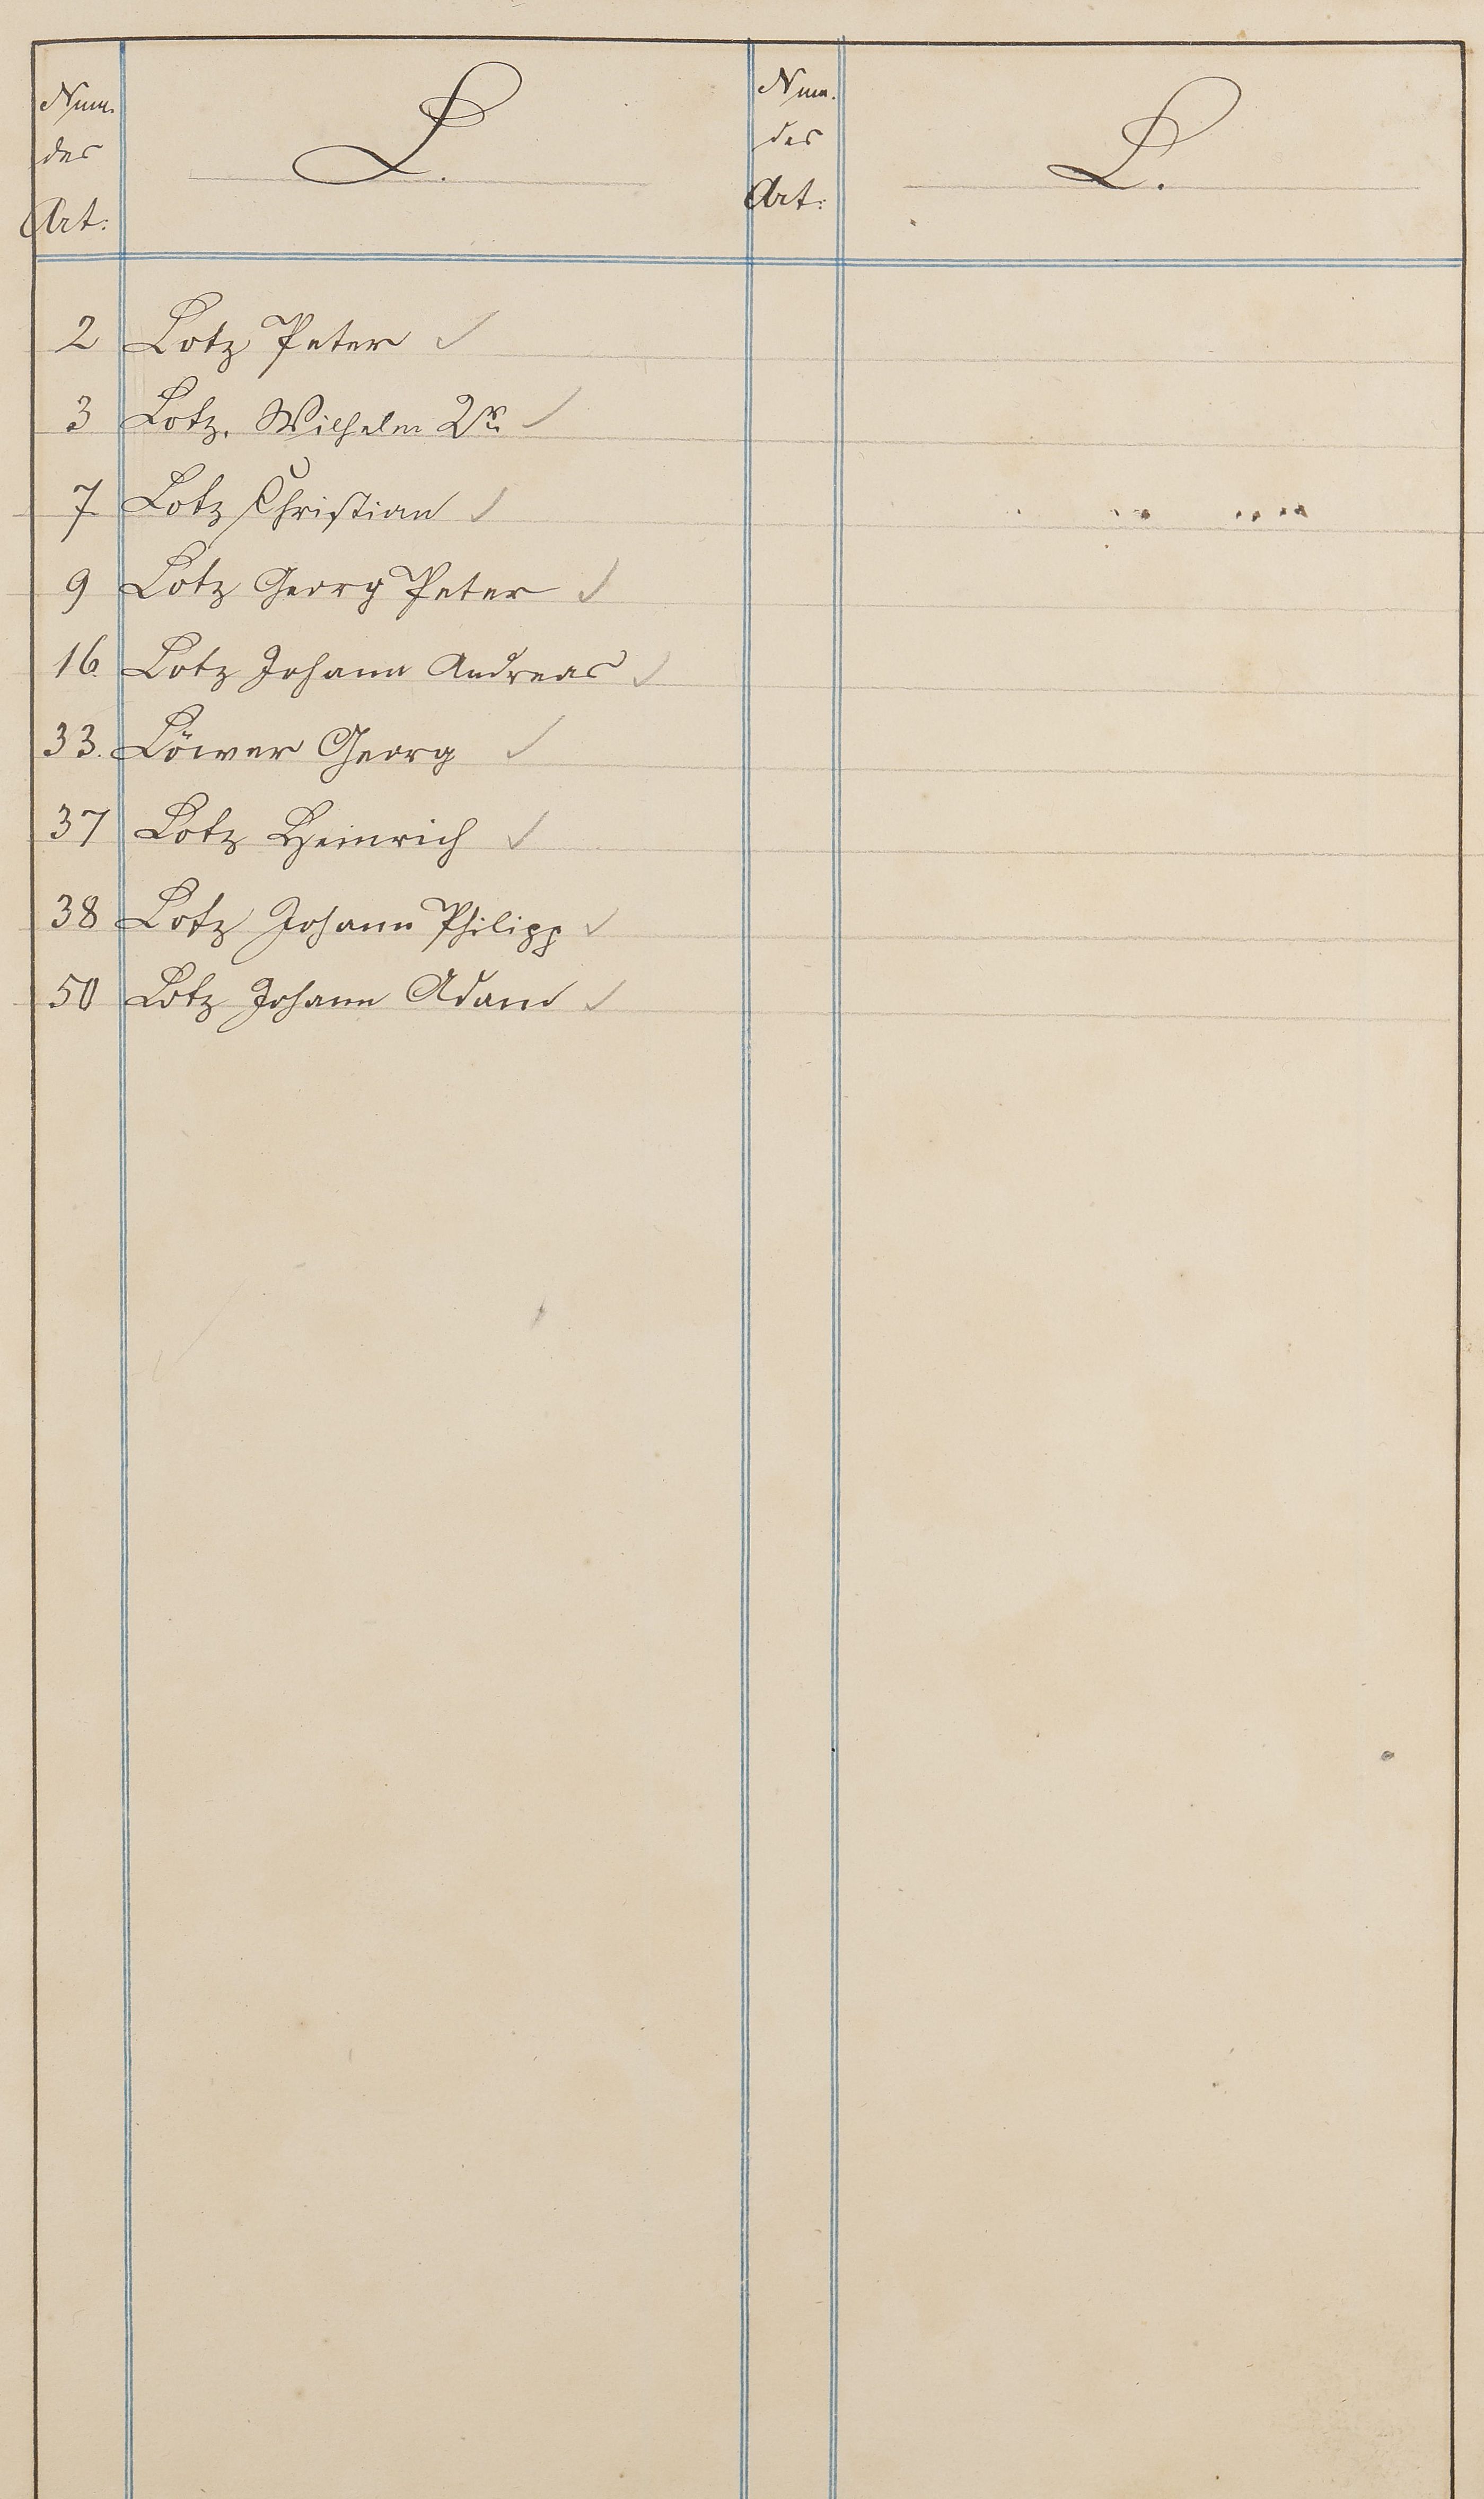 Num. des Art: L. Num. des Art: L.
2 Lotz Peter ✓
3 Lotz, Wilhelm 2r ✓
7. Lotz Christian ✓
9 Lotz Georg Peter ✓
16. Lotz Johann Andreas ✓
33. Löwer Georg ✓
37 Lotz Heinrich ✓
38 Lotz Johann Philipp ✓
50 Lotz Johann Adam ✓